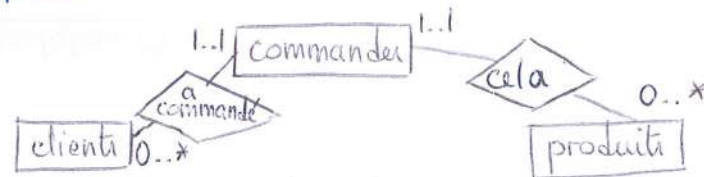 1..1 commandes 1..1
a
commandé
cela
0..*
clients 0..*
produits